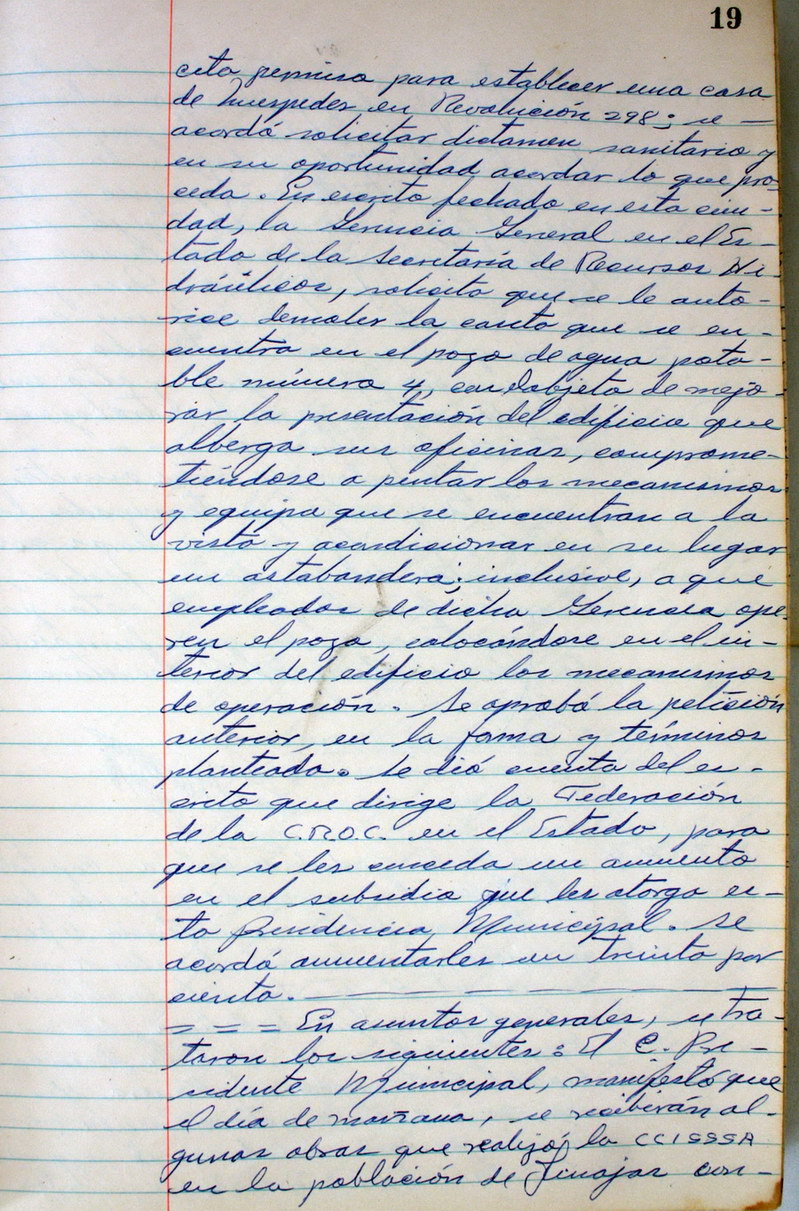 19
cita permiso para establecer una casa
de huespedes en Revolución 298; se —
acordó solicitar dictamen sanitario y
en su oportunidad acordar lo que pro-
ceda. En escrito fechado en esta ciu-
dad, la Gerencia General en el Es-
tado de la Secretaría de Recursos Hi-
dráulicos, solicita que se le auto-
rice demoler la caseta que se en-
cuentra en el pozo de agua pota-
ble número 4, con objeto de mejo-
rar la presentación del edificio que
alberga sus oficinas, comprome-
tiéndose a pintar los mecanismos
y equipo que se encuentran a la
vista y acondicionar en su lugar
un astabandera; inclusive, a que
empleados de dicha Gerencia ope-
ren el pozo, colocándose en el in-
terior del edificio los mecanismos
de operación. Se aprobó la petición
anterior, en la forma y términos
planteada. Se dió cuenta del es-
crito que dirige la Federación
de la C.R.O.C. en el Estado, para
que se les conceda un aumento
en el subsidio que les otorga es-
ta Presidencia Municipal. Se
acordó aumentarles un treinta por
ciento. — — — — — — —
= = = En asuntos generales, se tra-
taron los siguientes: El C. Pre-
sidente Municipal, manifestó que
el día de mañana, se recibirán al-
gunas obras que realizó la CCISSSA
en la población de Tinajas con-